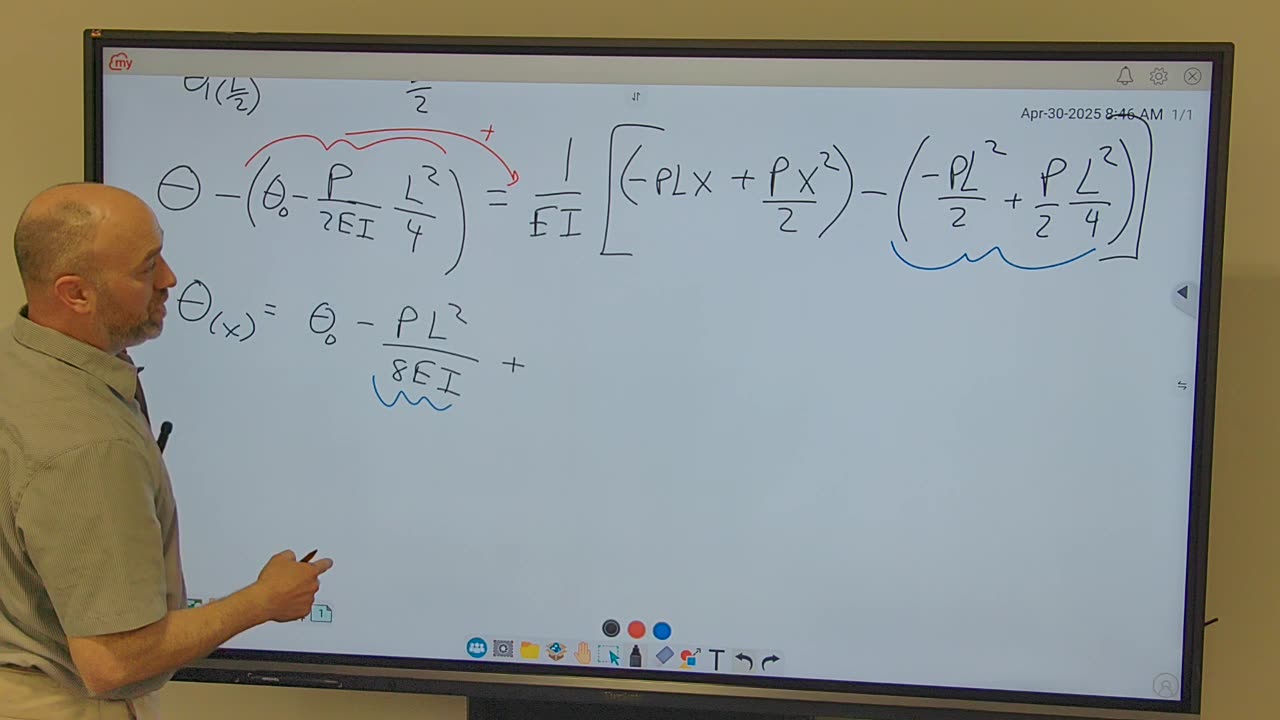 my
Apr-30-2025 8:46 AM 1/1
(L/2) /2
θ - (θ₀ - P/2EI L²/4) = 1/EI [(-PLX + PX²/2) - (-PL²/2 + P/2 L²/4)]
+
θ(x) = θ₀ - PL²/8EI +
1
T